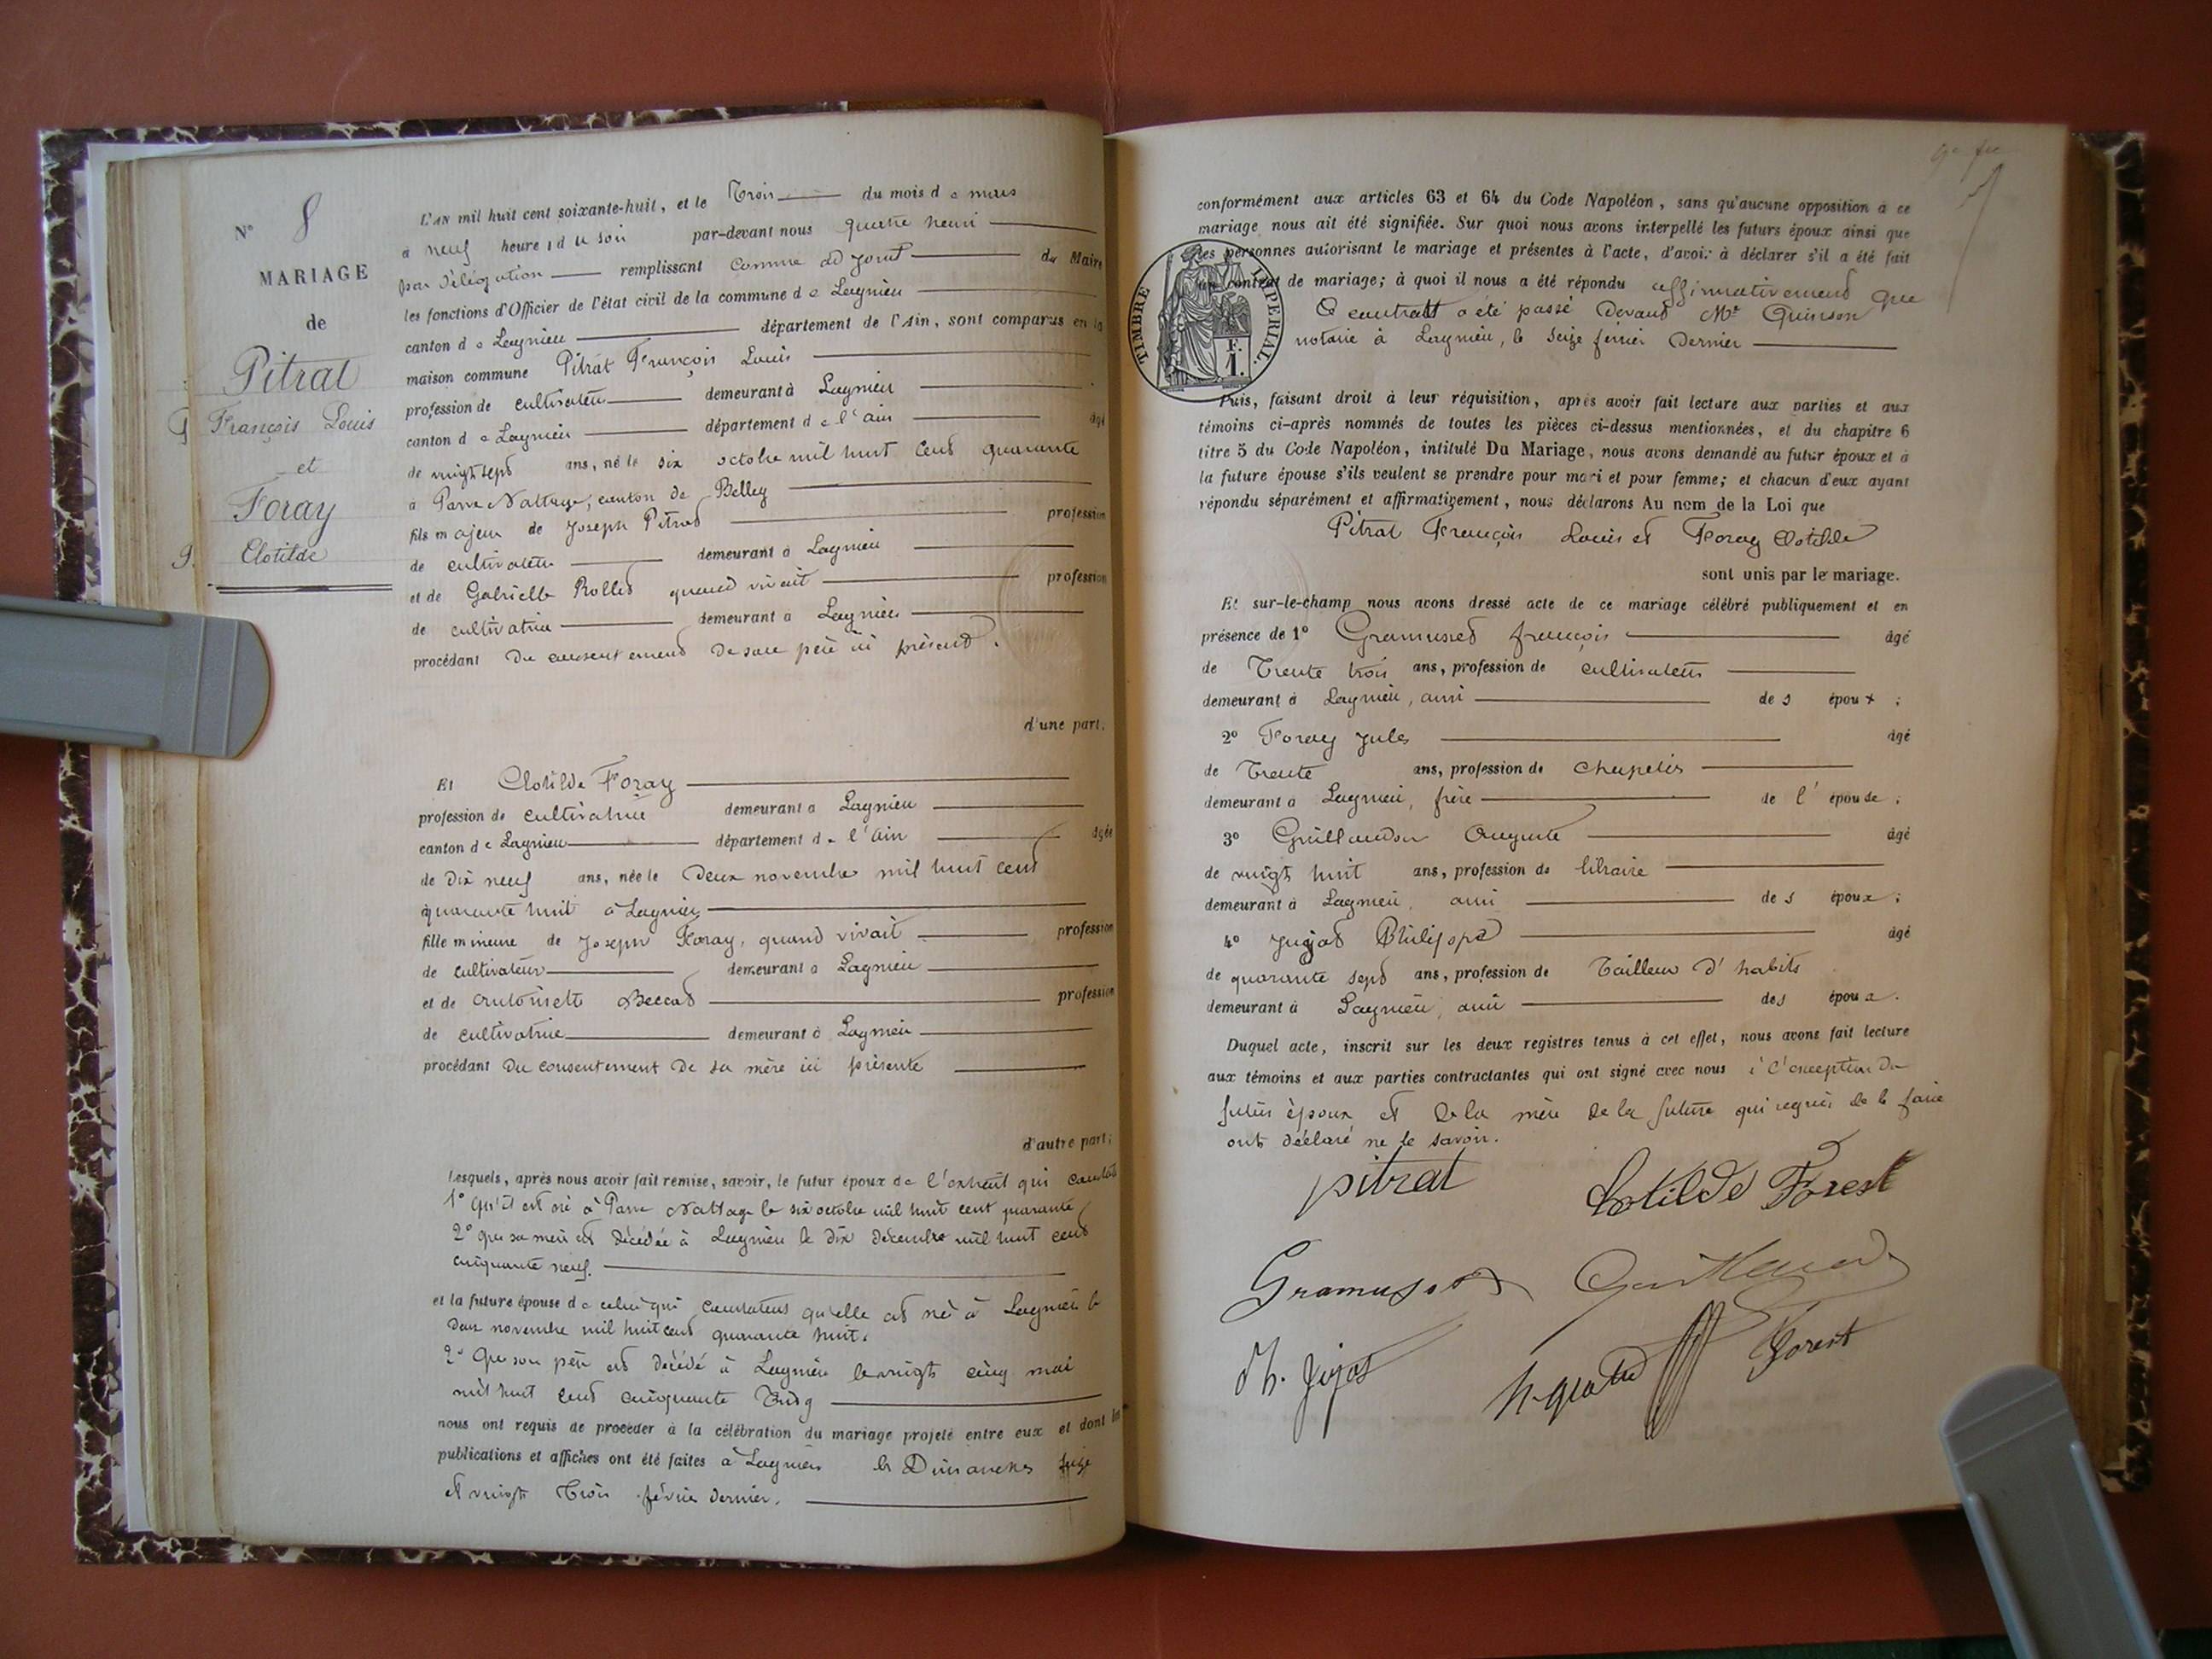 N° 8
MARIAGE
de
Pitrat
François Louis
et
Foray
Clotilde
L'AN mil huit cent soixante-huit, et le Trois du mois de mars
à neuf heures du soir par-devant nous quatre henri
par délégation remplissant comme adjoint du Maire
les fonctions d'Officier de l'état civil de la commune de Lagnieu
canton de Lagnieu département de l'Ain, sont comparus en la
maison commune Pitrat François Louis
profession de cultivateur demeurant à Lagnieu
canton de Lagnieu département de l'ain âgé
de vingt sept ans, né le six octobre mil huit cent quarante
à Parve Nattage, canton de Belley
fils majeur de Joseph Pitrat profession
de cultivateur demeurant à Lagnieu
et de Gabrielle Rollet quand vivait profession
de cultivatrice demeurant à Lagnieu
procédant du consentement de son père ici présent.
d'une part.
Et Clotilde Foray
profession de cultivatrice demeurant à Lagnieu
canton de Lagnieu département de l'ain âgée
de dix neuf ans, née le deux novembre mil huit cent
quarante huit à Lagnieu
fille mineure de Joseph Foray, quand vivait profession
de cultivateur demeurant à Lagnieu
et de antoinette Beccat profession
de cultivatrice demeurant à Lagnieu
procédant du consentement de sa mère ici présente
d'autre part;
Lesquels, après nous avoir fait remise, savoir, le futur époux de l'extrait qui
1° qu'il est né à Parve Nattage le six octobre mil huit cent quarante
2° que sa mère est décédée à Lagnieu le dix décembre mil huit cent
cinquante neuf.
et la future épouse de celui qui constatent qu'elle est né à Lagnieu le
deux novembre mil huit cent quarante huit.
2° Que son père est décédé à Lagnieu le vingt cinq mai
mil huit cent cinquante
nous ont requis de procéder à la célébration du mariage projeté entre eux et dont les
publications et affiches ont été faites à Lagnieu les Dimanches seize
et vingt trois février dernier.
conformément aux articles 63 et 64 du Code Napoléon, sans qu'aucune opposition à ce
mariage nous ait été signifiée. Sur quoi nous avons interpellé les futurs époux ainsi que
les personnes autorisant le mariage et présentes à l'acte, d'avoir à déclarer s'il a été fait
un contrat de mariage; à quoi il nous a été répondu affirmativement que
ce contratt a été passé devant Mt Quinson
notaire à Lagnieu, le seize février dernier
TIMBRE IMPERIAL.
1. F.
Puis, faisant droit à leur réquisition, après avoir fait lecture aux parties et aux
témoins ci-après nommés de toutes les pièces ci-dessus mentionnées, et du chapitre 6
titre 5 du Code Napoléon, intitulé Du Mariage, nous avons demandé au futur époux et à
la future épouse s'ils veulent se prendre pour mari et pour femme; et chacun d'eux ayant
répondu séparément et affirmativement, nous déclarons Au nom de la Loi que
Pitrat François Louis et Foray Clotilde
sont unis par le mariage.
Et sur-le-champ nous avons dressé acte de ce mariage célébré publiquement et en
présence de 1° Gramusset françois âgé
de Trente trois ans, profession de cultivateur
demeurant à Lagnieu, ami des époux;
2° Foray Jules âgé
de Trente ans, profession de chapelier
demeurant à Lagnieu, frère de l'épouse;
3° Guillaudon Auguste âgé
de vingt huit ans, profession de libraire
demeurant à Lagnieu, ami des époux;
4° Philippe âgé
de quarante sept ans, profession de Tailleur d'habits
demeurant à Lagnieu, ami des époux.
Duquel acte, inscrit sur les deux registres tenus à cet effet, nous avons fait lecture
aux témoins et aux parties contractantes qui ont signé avec nous à l'exception du
futur époux et de la mère de la future qui requis de le faire
ont déclaré ne le savoir.
pitrat
Clotilde Forest
Gramusset
h. quatre
Forest